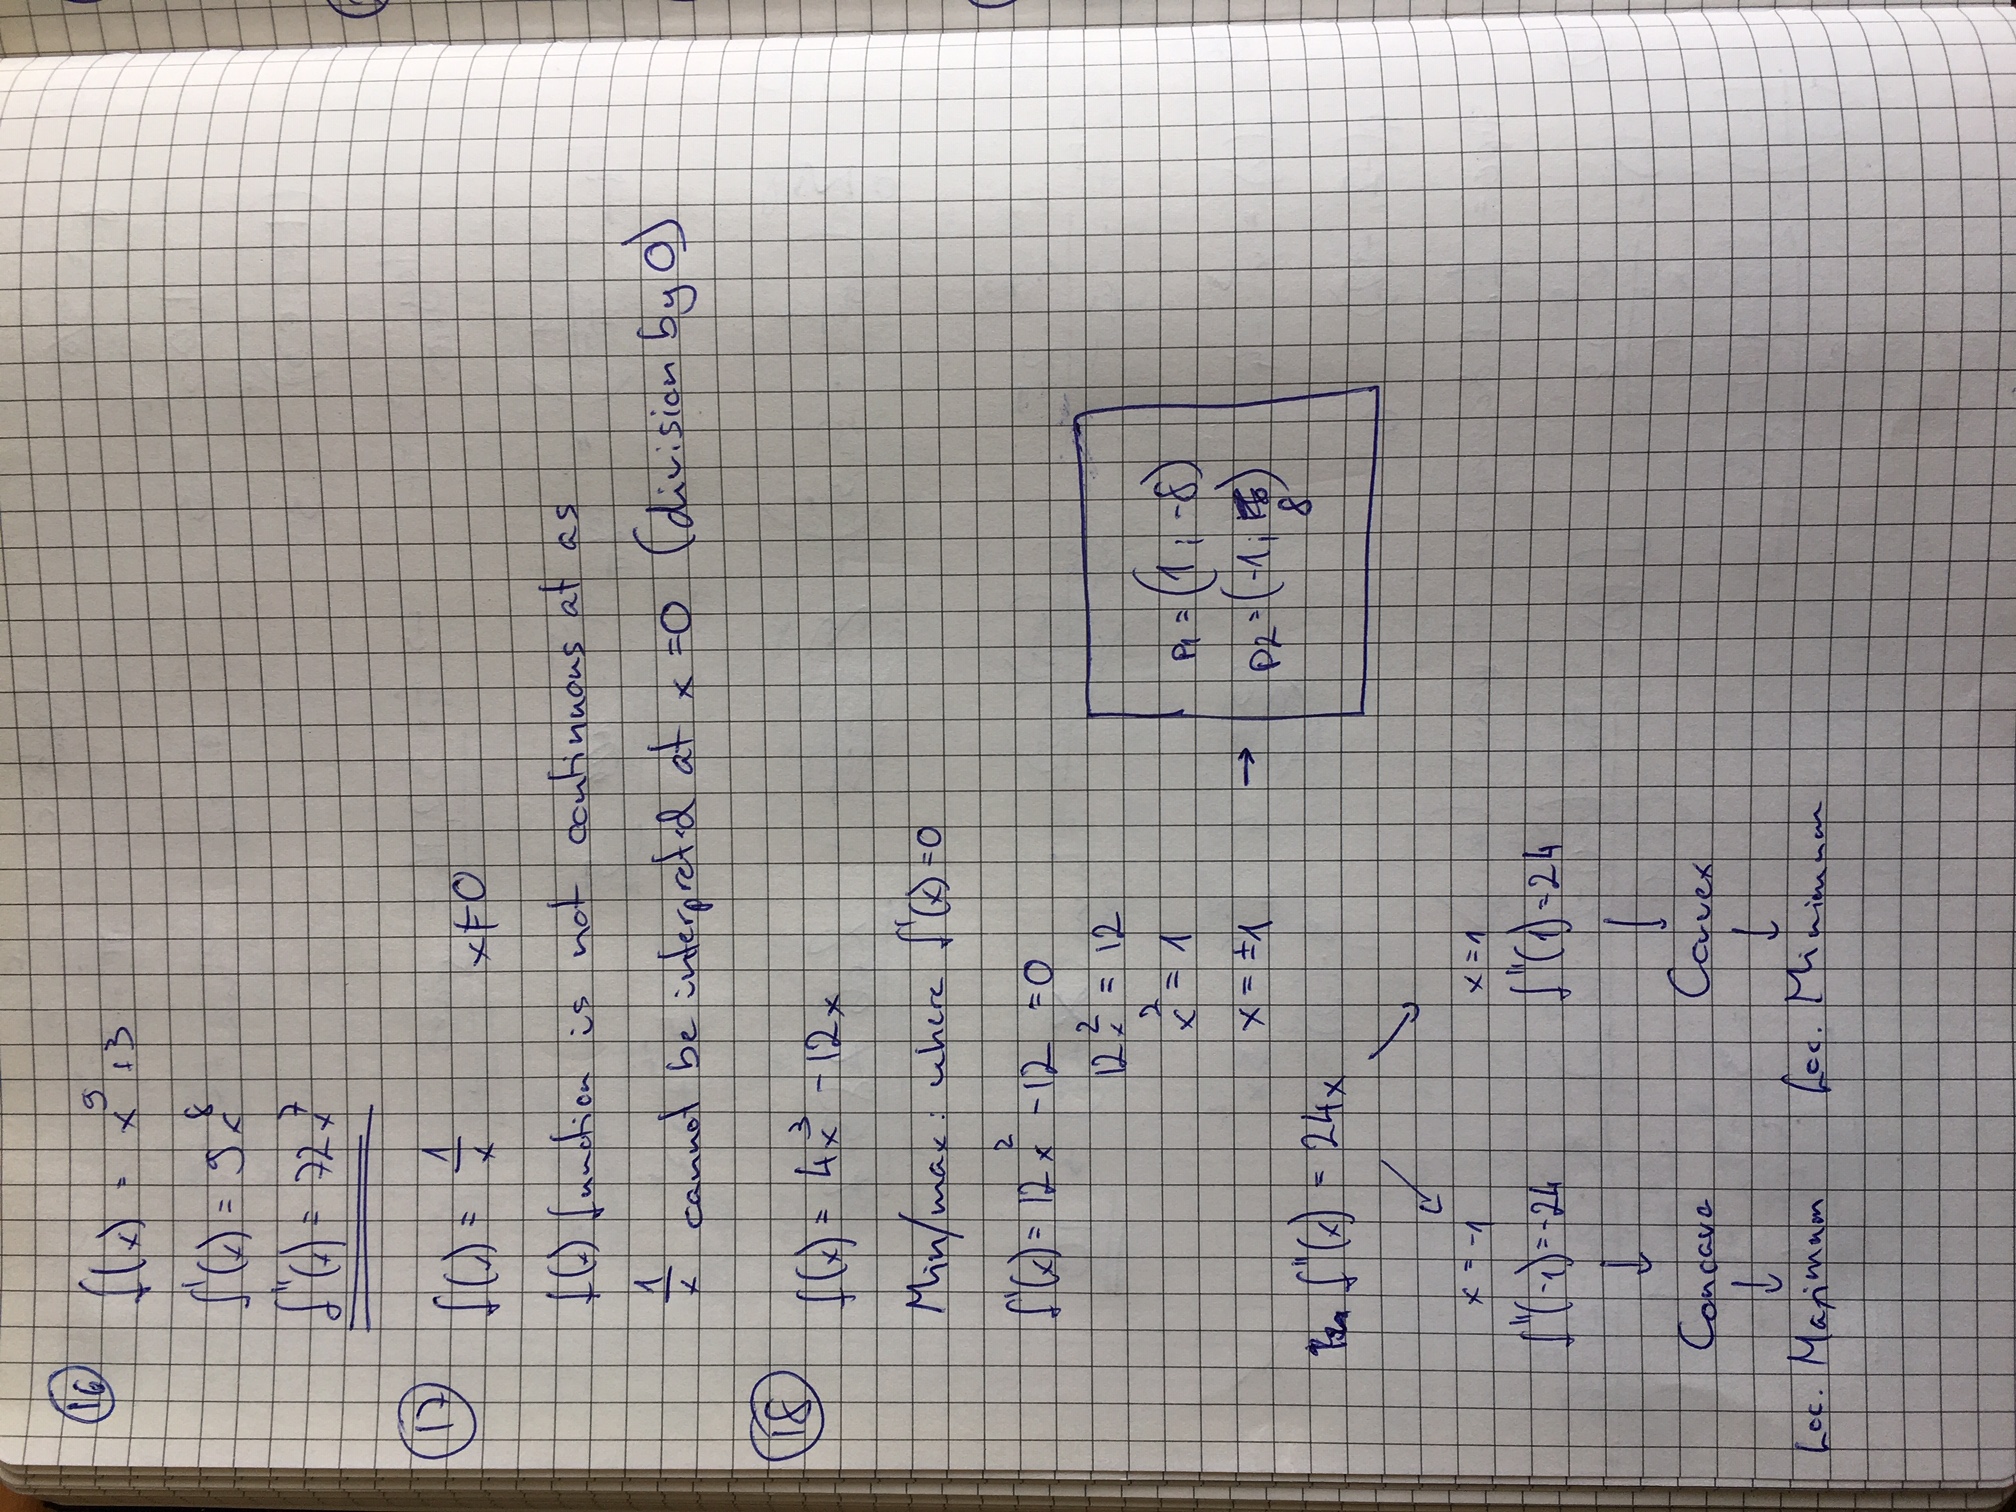 16
f(x) = x⁹ + 3
f'(x) = 9x⁸
f''(x) = 72x⁷
17
f(x) = 1/x x≠0
f(x) function is not continuous at as
1/x cannot be interpreted at x=0 (division by 0)
18
f(x) = 4x³ - 12x
Min/max: where f'(x)=0
f'(x) = 12x² - 12 = 0
12x² = 12
x² = 1
x = ±1 →
P1 = (1; -8)
P2 = (-1; 8)
f''(x) = 24x
x = -1 x = 1
f''(-1) = -24 f''(1) = 24
Concave Convex
Loc. Maximum Loc. Minimum